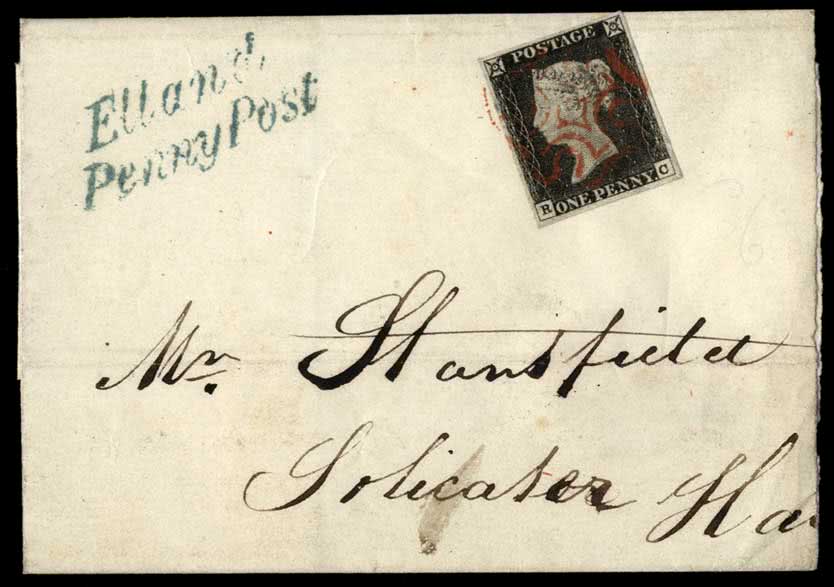 Elland
Penny Post
POSTAGE
ONE PENNY
R C
Mr. Stansfield
Solicater Ha